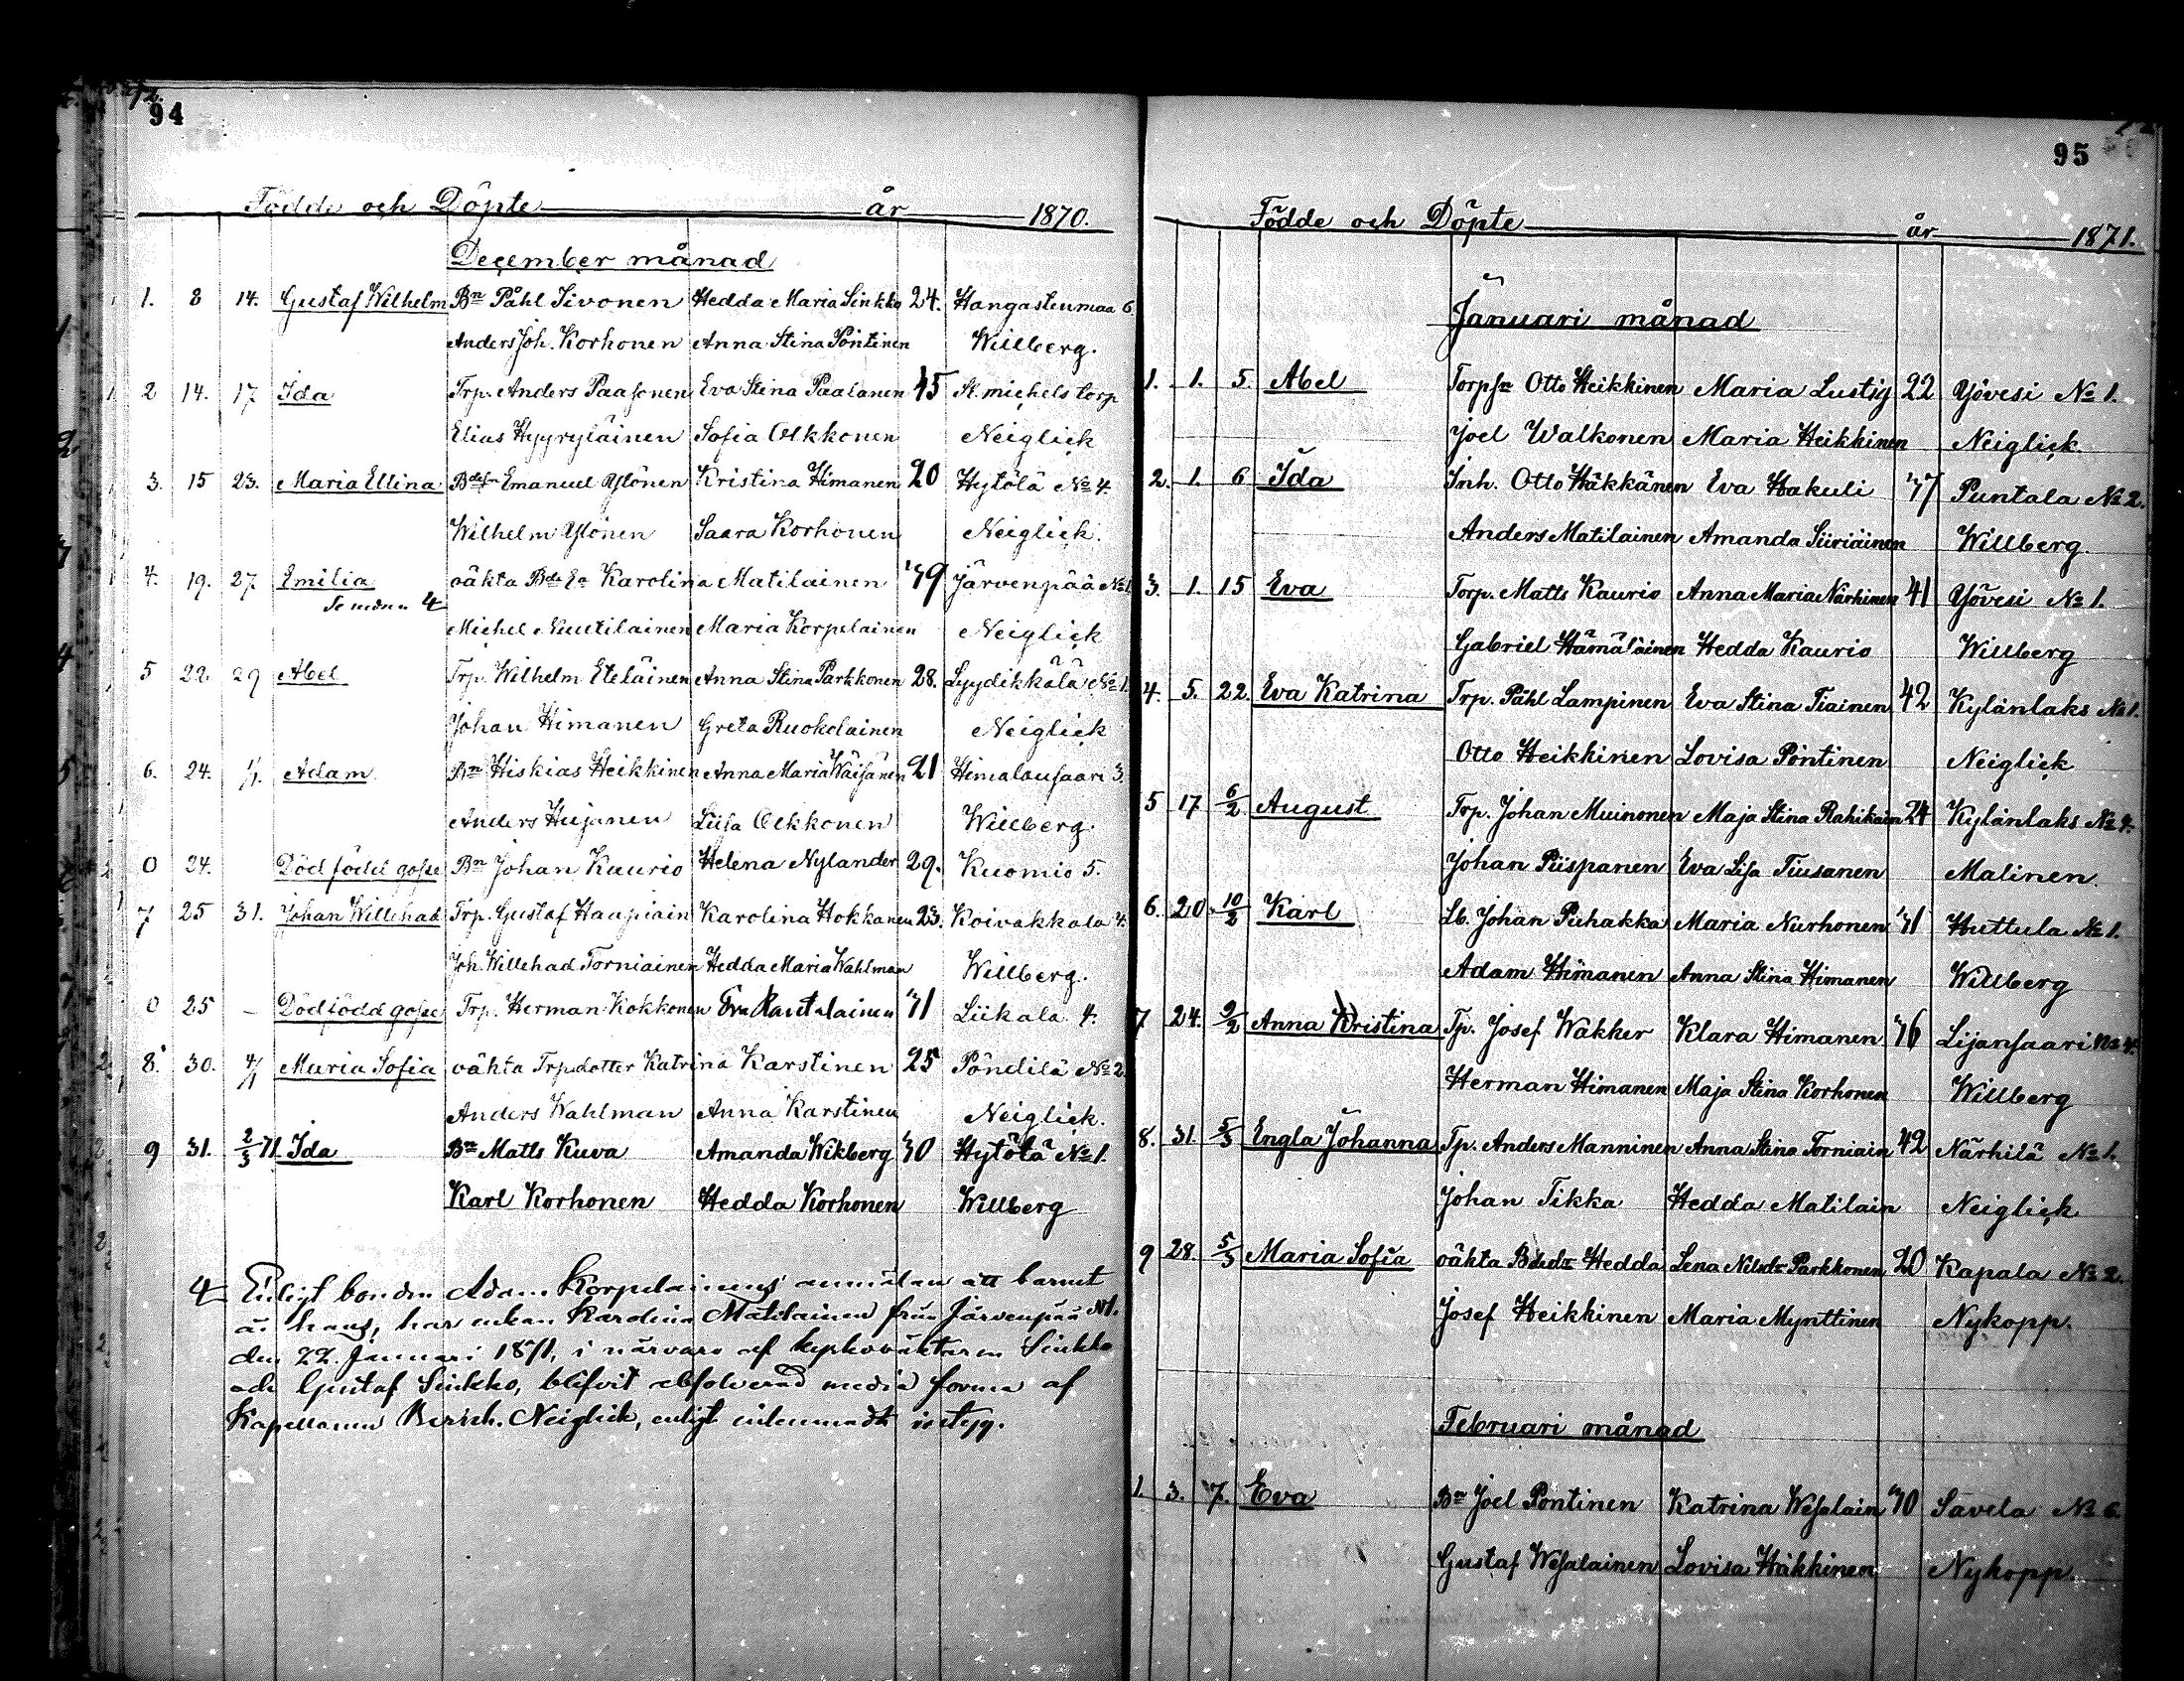 94
Födde och Döpte år 1870.
December månad
1. 8 14. Gustaf Wilhelm Bn Påhl Sivonen Hedda Maria Sinkko 24. Hangastenmaa 6.
Anders Joh. Korhonen Anna Stina Pöntinen Willberg.
2 14. 17 Ida Trp. Anders Paasonen Eva Stina Paalanen 45 St. michels torp
Elias Hyyryläinen Sofia Olkkonen Neiglick
3. 15 23. Maria Ellina Bdesn Emanuel Ylönen Kristina Himanen 20 Hytölä No 4.
Wilhelm Ylönen Saara Korhonen Neiglick.
4. 19. 27 Emilia oäkta Bde Ea Karolina Matilainen 39 Järvenpää No 1
Se nedan 4
Michel Nuutilainen Maria Korpelainen Neiglick
5 22. 29 Abel Trp. Wilhelm Eteläinen Anna Stina Parkkonen 28. Lyydikkälä No 1.
Johan Himanen Greta Ruokolainen Neiglick
6. 24. 1/1. Adam Bn Hiskias Heikkinen Anna Maria Wäisänen 21 Himalansaari 3.
Anders Husanen Liisa Olkkonen Willberg.
0 24. Död född gosse Bn Johan Kaurio Helena Nylander 29. Kuomio 5.
7 25 31. Johan Willehad Trp. Gustaf Haapiain Karolina Hokkanen 23. Koivakkala 4.
Joh. Willehad Torniainen Hedda Maria Wahlman Willberg.
0 25 – Dödfödd gosse Trp. Herman Kokkonen Eva Rautalainen 31 Liikala 4.
8. 30. 4/1 Maria Sofia oäkta Trpdotter Katrina Karstinen 25 Pöndilä No 2
Anders Wahlman Anna Karstinen Neiglick.
9 31. 2/3 71 Ida Bn Matts Kuva Amanda Wikberg 30 Hytölä No 1.
Karl Korhonen Hedda Korhonen Willberg
4 Enligt bonden Adam Korpelainens anmälan att barnet
är hans, har enkan Karolina Matilainen från Järvenpää No 1.
den 22. Januari 1871, i närvaro af kyrkoväktaren Sinkko
och Gustaf Sinkko, blifvit absolverad media forma af
Kapellanen Neiglick, enligt inlemnadt intyg.
95
Födde och Döpte år 1871.
Januari månad
1. 1. 5. Abel Torpsn Otto Heikkinen Maria Lustig 22 Yövesi No 1.
Joel Walkonen Maria Heikkinen Neiglick.
2. 1. 6 Ida Inh. Otto Häkkänen Eva Hakuli 37 Puntala No 2.
Anders Matilainen Amanda Siiriäinen Willberg.
3. 1. 15 Eva Torp. Matts Kaurio Anna Maria Närhinen 41 Yövesi No 1.
Gabriel Hämäläinen Hedda Kaurio Willberg
4. 5. 22. Eva Katrina Trp. Påhl Lampinen Eva Stina Tiainen 42 Kylänlaks No 1.
Otto Heikkinen Lovisa Pöntinen Neiglick
5 17 6/2 August Trp. Johan Muinonen Maja Stina Rahikain 24 Kylänlaks No 4.
Johan Piispanen Eva Lisa Tiusanen Malinen.
6. 20. 10/2 Karl Lb. Johan Puhakka Maria Nurhonen 31 Huttula No 1.
Adam Himanen Anna Stina Himanen Willberg
7 24. 9/2 Anna Kristina Tp. Josef Wakker Klara Himanen 36 Lijansaari No 4.
Herman Himanen Maja Stina Korhonen Willberg
8. 31. 5/3 Engla Johanna Tp. Anders Manninen Anna Stina Torniain 42 Närhilä No 1.
Johan Tikka Hedda Matilain Neiglick
9 28. 5/3 Maria Sofia oäkta Bdedr Hedda Lena Nilsdr Parkkonen 20 Kapala No 2.
Josef Heikkinen Maria Mynttinen Nykopp.
Februari månad
1. 3. 7. Eva Bn Joel Pöntinen Katrina Wesalain 30 Savela No 6.
Gustaf Wesalainen Lovisa Häkkinen Nykopp.